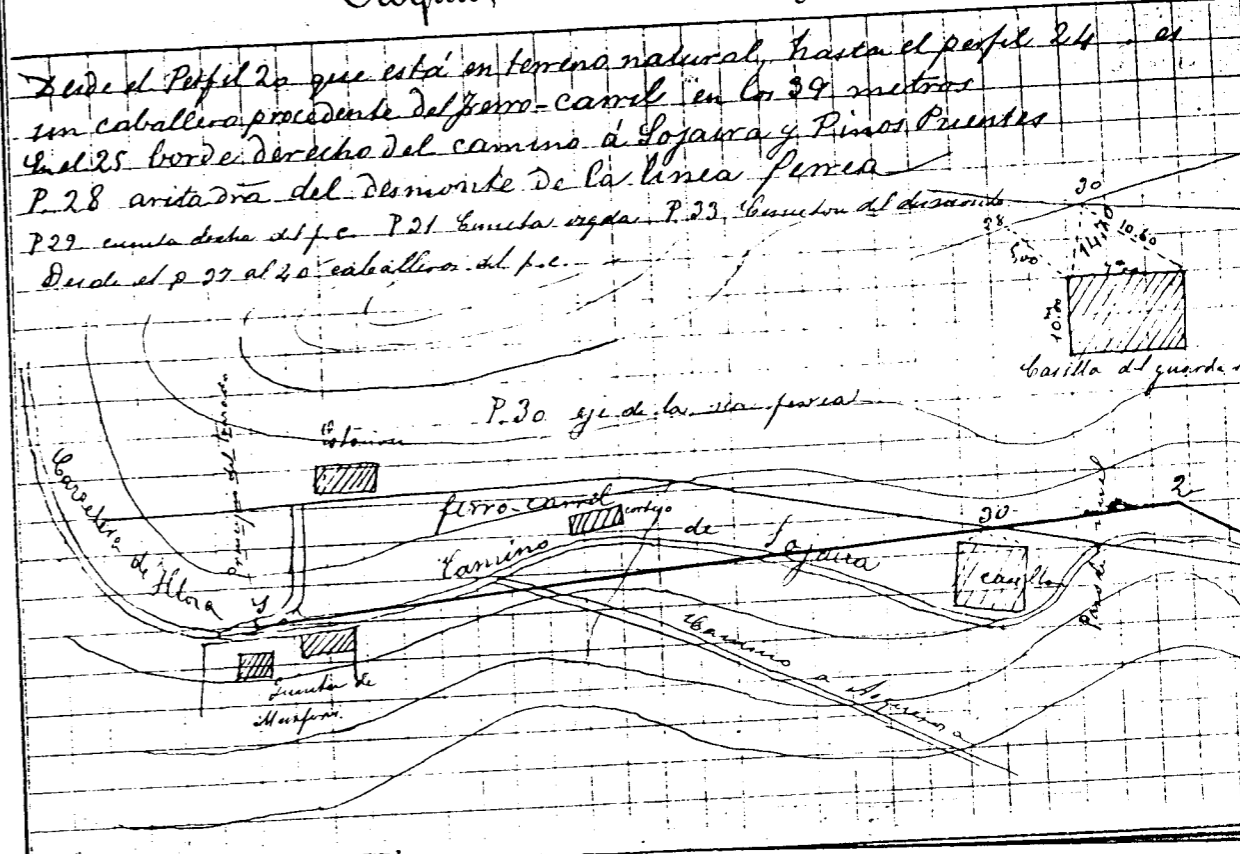 Croquis,
Desde el Perfil 20 que está en terreno natural, hasta el perfil 24. es
un caballero procedente del ferro-carril en los 39 metros
En el 25 borde derecho del camino á Lojaira y Pinos Puentes
P. 28 arista dra del desmonte de la linea ferrea
P 29 cuneta drcha del f.c. P 31 Cuneta izqda P. 33,
Desde el p 37 al 40 caballeros del f.c.
30
28
5,00
14,70
10.60
10.70
Casilla del guarda
P. 30 eje de la via ferrea
Principio del
Estacion
Carretera de Illora
ferro-carril
cortijo
Camino de Lojaira
30
casilla
Paso de nivel
2
Camino a
de